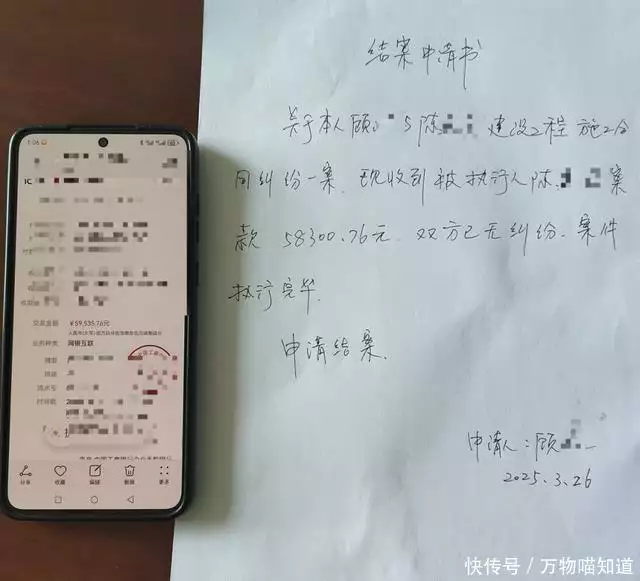 1:06
交易金额 ¥59,535.76元
业务种类 网银互联
时间戳
分享 收藏 编辑 删除 更多
结案申请书
关于本人顾 与陈 建设工程施工合
同纠纷一案,现收到被执行人陈 案
款 58300.76元,双方已无纠纷,案件
执行完毕.
申请结案.
申请人:顾
2025.3.26
快传号/万物喵知道